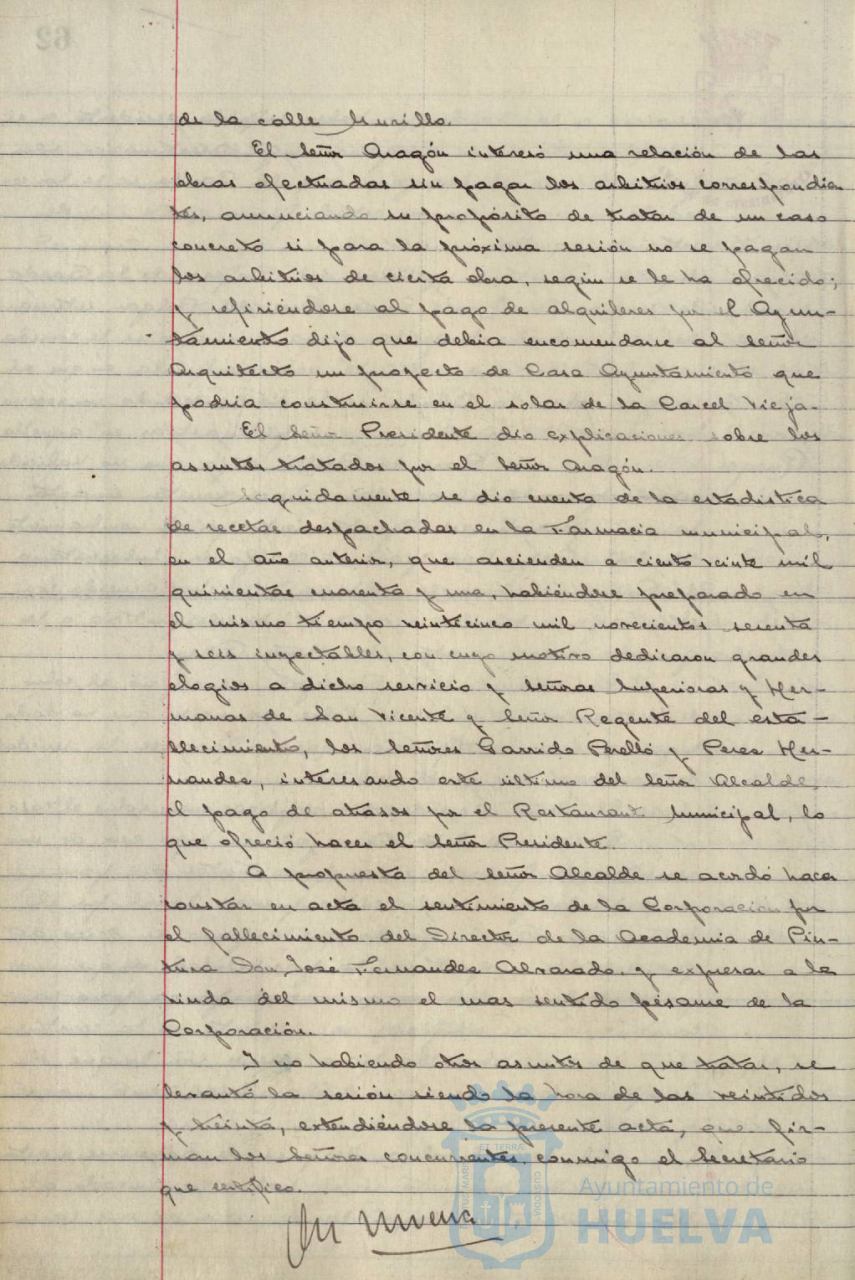 de la calle Murillo.
El Señor Aragón interesó una relación de las
obras efectuadas sin pagar los arbitrios correspondien
tes, anunciando su propósito de tratar de un caso
concreto si para la próxima sesión no se pagan
los arbitrios de cierta obra, según se le ha ofrecido;
y refiriéndose al pago de alquileres por el Ayun-
tamiento dijo que debia encomendarse al Señor
Arquitecto un proyecto de Casa Ayuntamiento que
podria construirse en el solar de la Carcel Vieja-
El Señor Presidente dio explicaciones sobre los
asuntos tratados por el Señor Aragón.
Seguidamente se dio cuenta de la estadistica
de recetas despachadas en la Farmacia municipal,
en el año anterior, que ascienden a ciento veinte mil
quinientas cuarenta y una, habiéndose preparado en
el mismo tiempo veinticinco mil novecientos sesenta
y seis inyectables, con cuyo motivo dedicaron grandes
elogios a dicho servicio y Señoras Superioras y Her-
manas de San Vicente y Señor Regente del esta-
blecimiento, los Señores Garrido Perelló y Perez Her-
nandez, interesando este último del Señor Alcalde,
el pago de atrasos por el Restaurant Municipal, lo
que ofreció hacer el Señor Presidente.
A propuesta del Señor Alcalde se acordó hacer
constar en acta el sentimiento de la Corporacion por
el fallecimiento del Director de la Academia de Pin-
tura Don José Fernandez Alvarado y expresar a la
viuda del mismo el mas sentido pésame de la
Corporación.
Y no habiendo otros asuntos de que tratar, se
levantó la sesión siendo la hora de las veintidos
y treinta, extendiéndose la presente acta, que fir-
man los Señores concurrentes, conmigo el Secretario
que certifico.
Ayuntamiento de
HUELVA